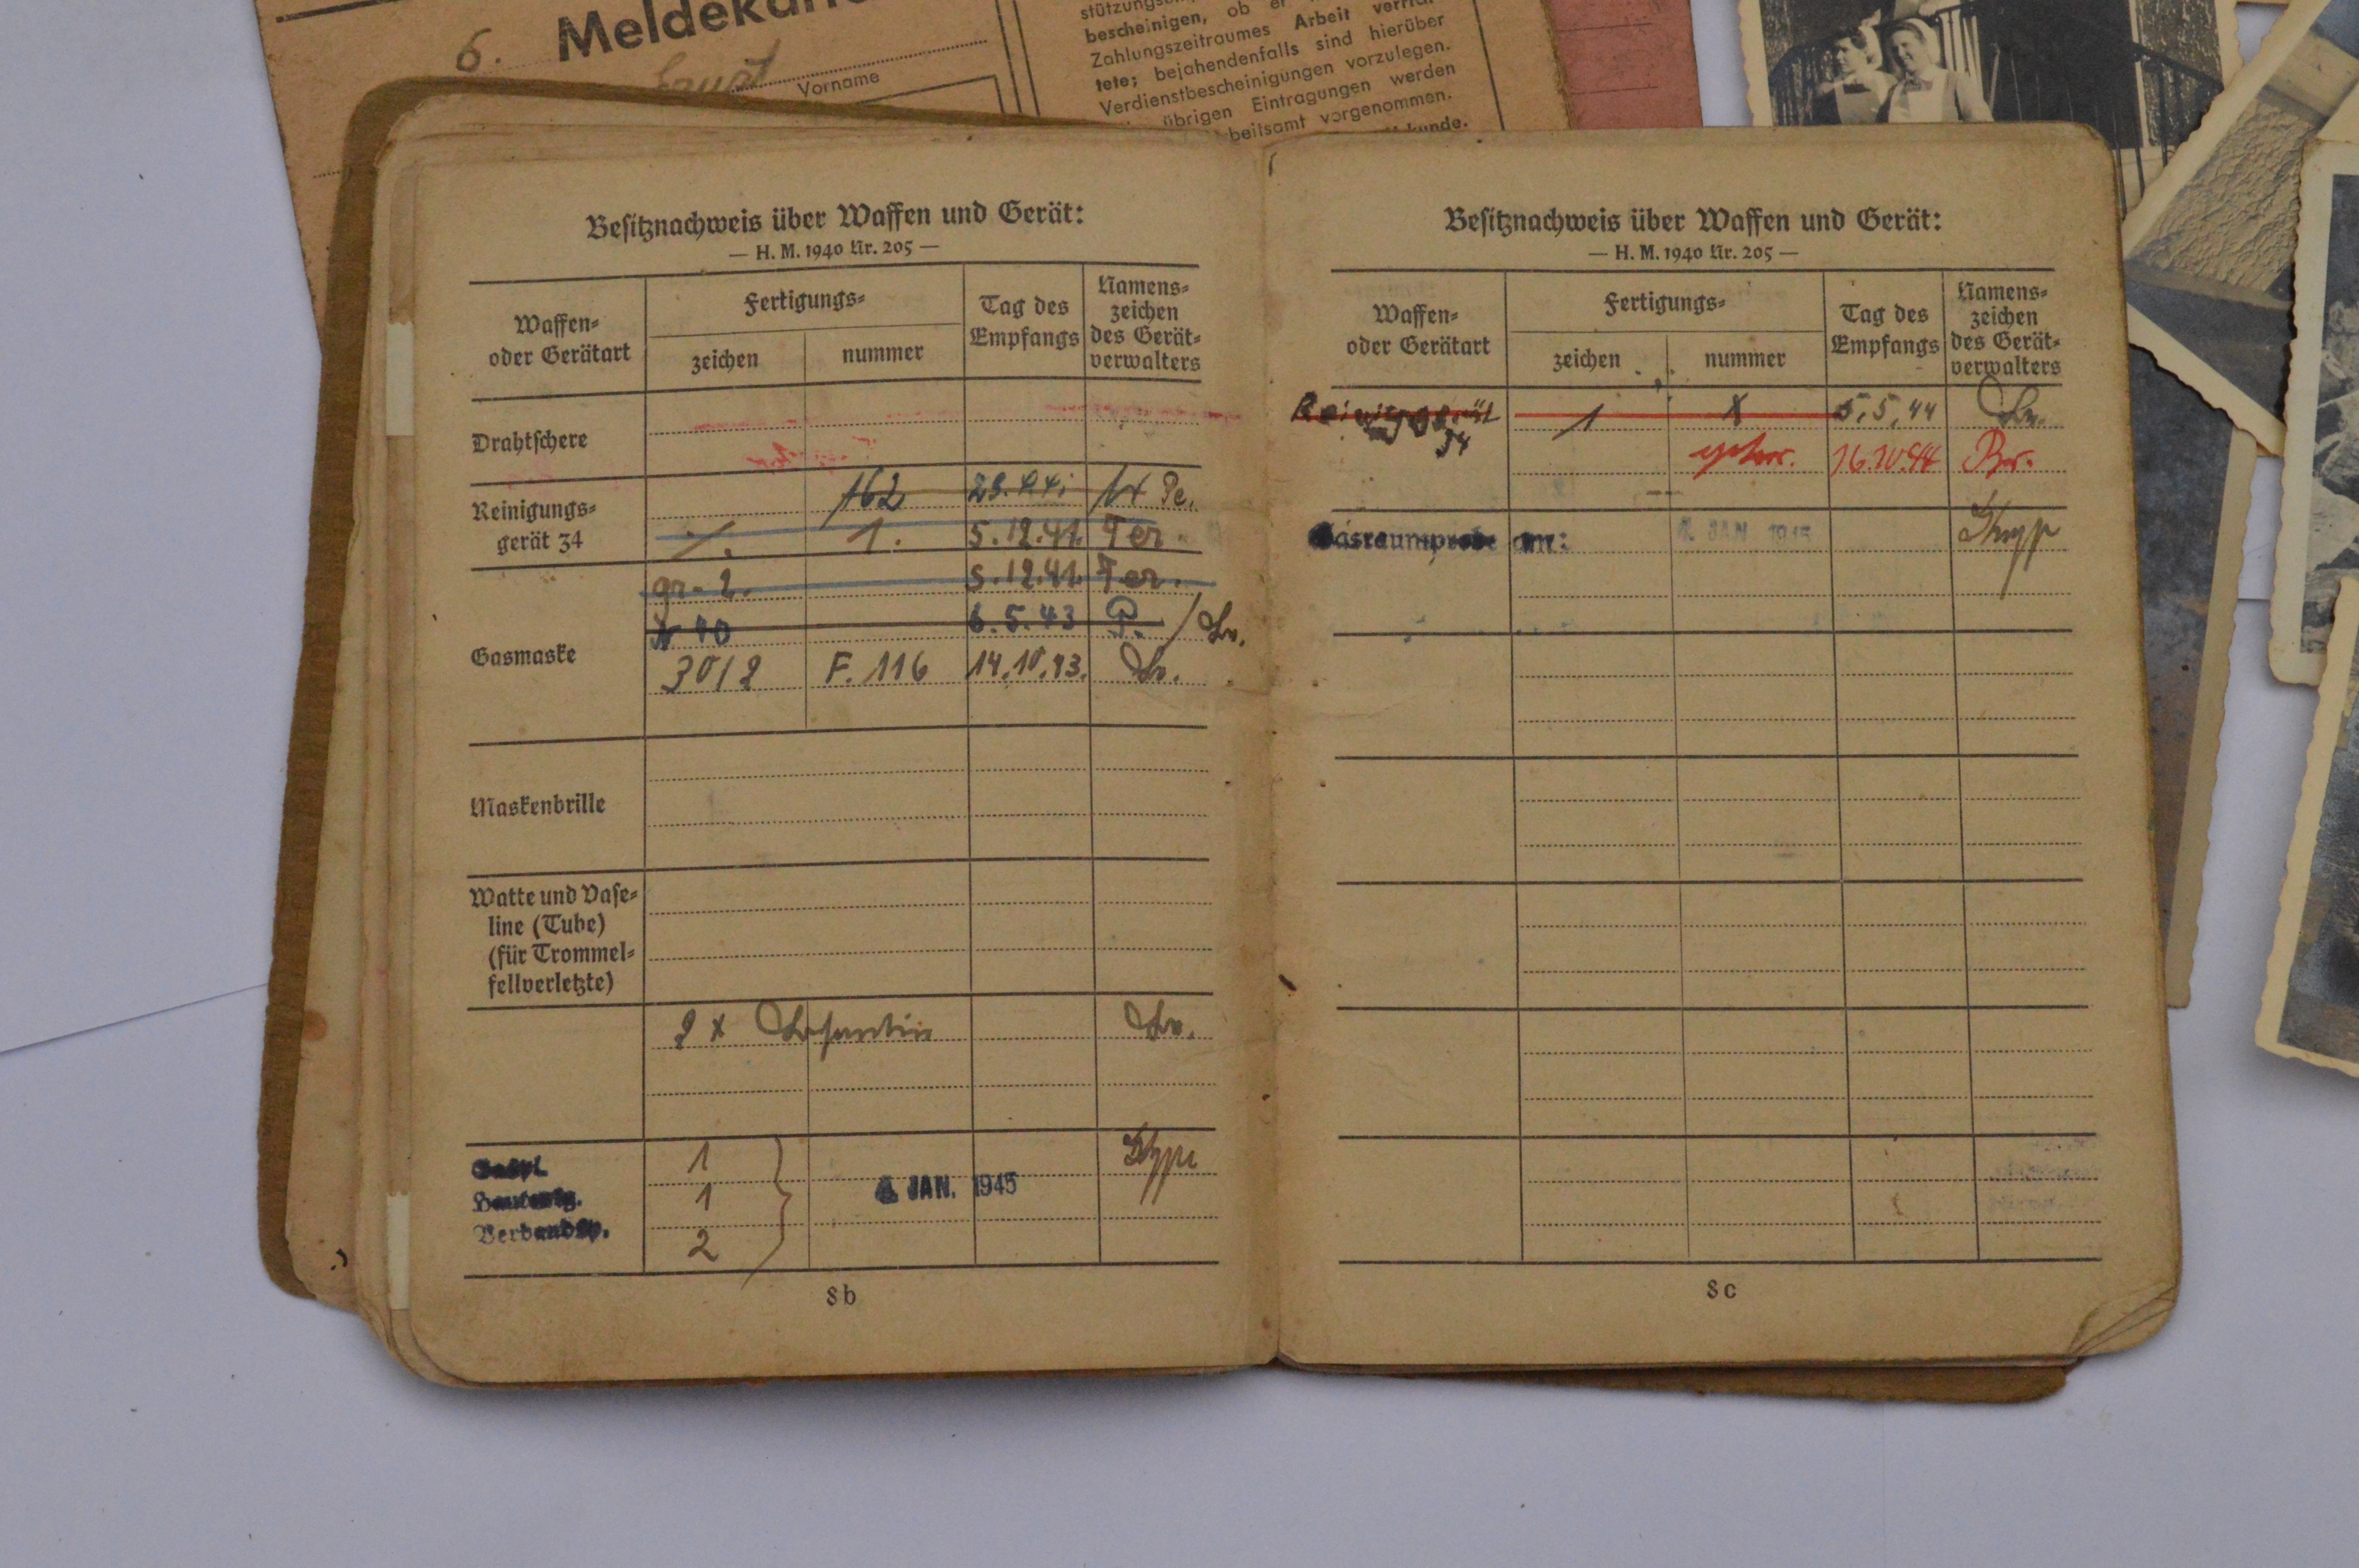 6.
Vorname
bescheinigen, ob er
Zahlungszeitraumes Arbeit
tete; bejahendenfalls sind hierüber
Verdienstbescheinigungen vorzulegen.
übrigen Eintragungen werden
vorgenommen.
Besitznachweis über Waffen und Gerät:
— H. M. 1940 Nr. 205 —
Waffen-
oder Gerätart
Fertigungs-
zeichen
nummer
Tag des
Empfangs
Namens-
zeichen
des Gerät-
verwalters
Drahtschere
Reinigungs-
gerät 34
162
1. 5.12.41. Fer.
Gasmaske
gr. 2. 5.12.41. Fer.
40 6.5.43 P.
30/2 F. 116 14.10.43.
Maskenbrille
Watte und Vase-
line (Tube)
(für Trommel-
fellverletzte)
2 x
1
1
Verbandp. 2
JAN. 1945
8b
Besitznachweis über Waffen und Gerät:
— H. M. 1940 Nr. 205 —
Waffen-
oder Gerätart
Fertigungs-
zeichen
nummer
Tag des
Empfangs
Namens-
zeichen
des Gerät-
verwalters
34
1 x 5.5.44
16.10.44 Br.
Gasraumprobe am: JAN 1945
8c